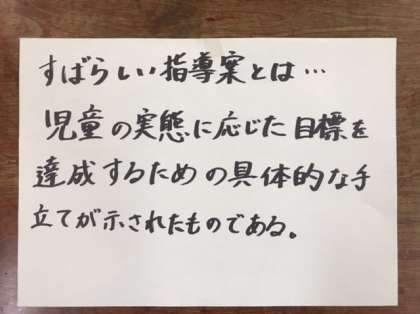 すばらしい指導案とは…
児童の実態に応じた目標を
達成するための具体的な手
立てが示されたものである。